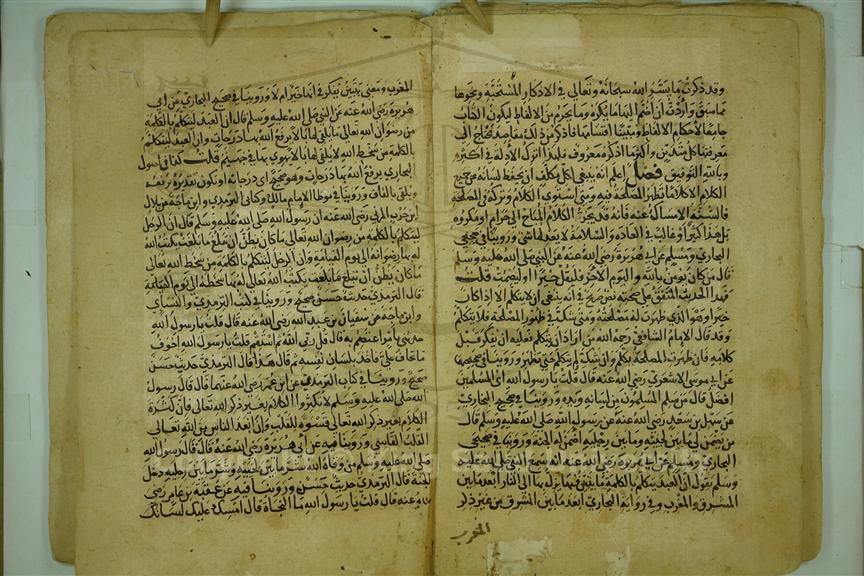 وقد ذكرت ما يسر الله سبحانه وتعالى في الاذكار المستحبة ونحوها
مما سبق واردت ان اضم اليها ما يكره وما يحرم من الالفاظ ليكون الكتاب
جامعا لاحكام الالفاظ ومبينا اقسامها فاذكر من ذلك مقاصد يحتاج الى
معرفتها كل متدين واكثر ما اذكره معروف فلهذا اترك الادلة في اكثره
وبالله التوفيق فصل اعلم انه ينبغي لكل مكلف ان يحفظ لسانه عن جميع
الكلام الا كلاما تظهر المصلحة فيه ومتى استوى الكلام وتركه في المصلحة
فالسنة الامساك عنه فانه قد يجر الكلام المباح الى حرام او مكروه
بل هذا كثير او غالب في العادة والسلامة لا يعدلها شي وروينا في صحيحي
البخاري ومسلم عن ابي هريرة رضي الله عنه عن النبي صلى الله عليه وسلم
قال من كان يومن بالله واليوم الاخر فليقل خيرا او ليصمت قلت
فهذا الحديث المتفق على صحته نص صريح في انه ينبغي ان لا يتكلم الا اذا كان
خيرا وهو الذي ظهرت له مصلحته ومتى شك في ظهور المصلحة فلا يتكلم
وقد قال الامام الشافعي رحمه الله من اراد ان يتكلم فعليه ان يفكر قبل
كلامه فان ظهرت المصلحة تكلم وان شك لم يتكلم حتى تظهر وروينا في صحيحهما
عن ابي موسى الاشعري رضي الله عنه قال قلت يا رسول الله اي المسلمين
افضل قال من سلم المسلمون من لسانه ويده وروينا في صحيح البخاري
عن سهل بن سعد رضي الله عنه عن رسول الله صلى الله عليه وسلم قال
من يضمن لي ما بين لحييه وما بين رجليه اضمن له الجنة وروينا في صحيحي
البخاري ومسلم عن ابي هريرة رضي الله عنه انه سمع النبي صلى الله عليه
وسلم يقول ان العبد يتكلم بالكلمة ما يتبين فيها يزل بها الى النار ابعد ما بين
المشرق والمغرب وفي رواية البخاري ابعد ما بين المشرق من غير ذكر
المغرب
المغرب ومعنى يتبين يتفكر في انها خير ام لا وروينا في صحيح البخاري عن ابي
هريرة رضي الله عنه عن النبي صلى الله عليه وسلم قال ان العبد ليتكلم بالكلمة
من رضوان الله تعالى ما يلقي لها بالا يرفع الله بها درجات وان العبد ليتكلم
بالكلمة من سخط الله لا يلقي لها بالا يهوي بها في جهنم قلت كذا في اصول
البخاري يرفع الله بها درجات وهو صحيح اي درجاته او تكون تقديره يرفعه
ويلقي بالقاف وروينا في موطا الامام مالك وكتابي الترمذي وابن ماجة عن بلال
ابن الحرث المزني رضي الله عنه ان رسول الله صلى الله عليه وسلم قال ان الرجل
ليتكلم بالكلمة من رضوان الله تعالى ما كان يظن ان تبلغ ما بلغت يكتب الله
له بها رضوانه الى يوم القيامة وان الرجل ليتكلم بالكلمة من سخط الله تعالى
ما كان يظن ان تبلغ ما بلغت يكتب الله تعالى له بها سخطه الى يوم القيامة
قال الترمذي حديث حسن صحيح وروينا في كتب الترمذي والنسائي
وابن ماجه عن سفيان بن عبد الله رضي الله عنه قال قلت يا رسول الله
حدثني بامر اعتصم به قال قل ربي الله ثم استقم قلت يا رسول الله ما اخوف
ما تخاف علي فاخذ بلسان نفسه ثم قال هذا قال الترمذي حديث حسن
صحيح وروينا في كتاب الترمذي عن ابن عمر رضي الله عنهما قال قال رسول
الله صلى الله عليه وسلم لا تكثروا الكلام بغير ذكر الله تعالى فان كثرة
الكلام بغير ذكر الله تعالى قسوة للقلب وان ابعد الناس من الله تعالى
القلب القاسي وروينا فيه عن ابي هريرة رضي الله عنه قال قال رسول الله
صلى الله عليه وسلم من وقاه الله شر ما بين لحييه وشر ما بين رجليه دخل
الجنة قال الترمذي حديث حسن وروينا فيه عن عقبة بن عامر رضي
الله عنه قال قلت يا رسول الله ما النجاة قال امسك عليك لسانك